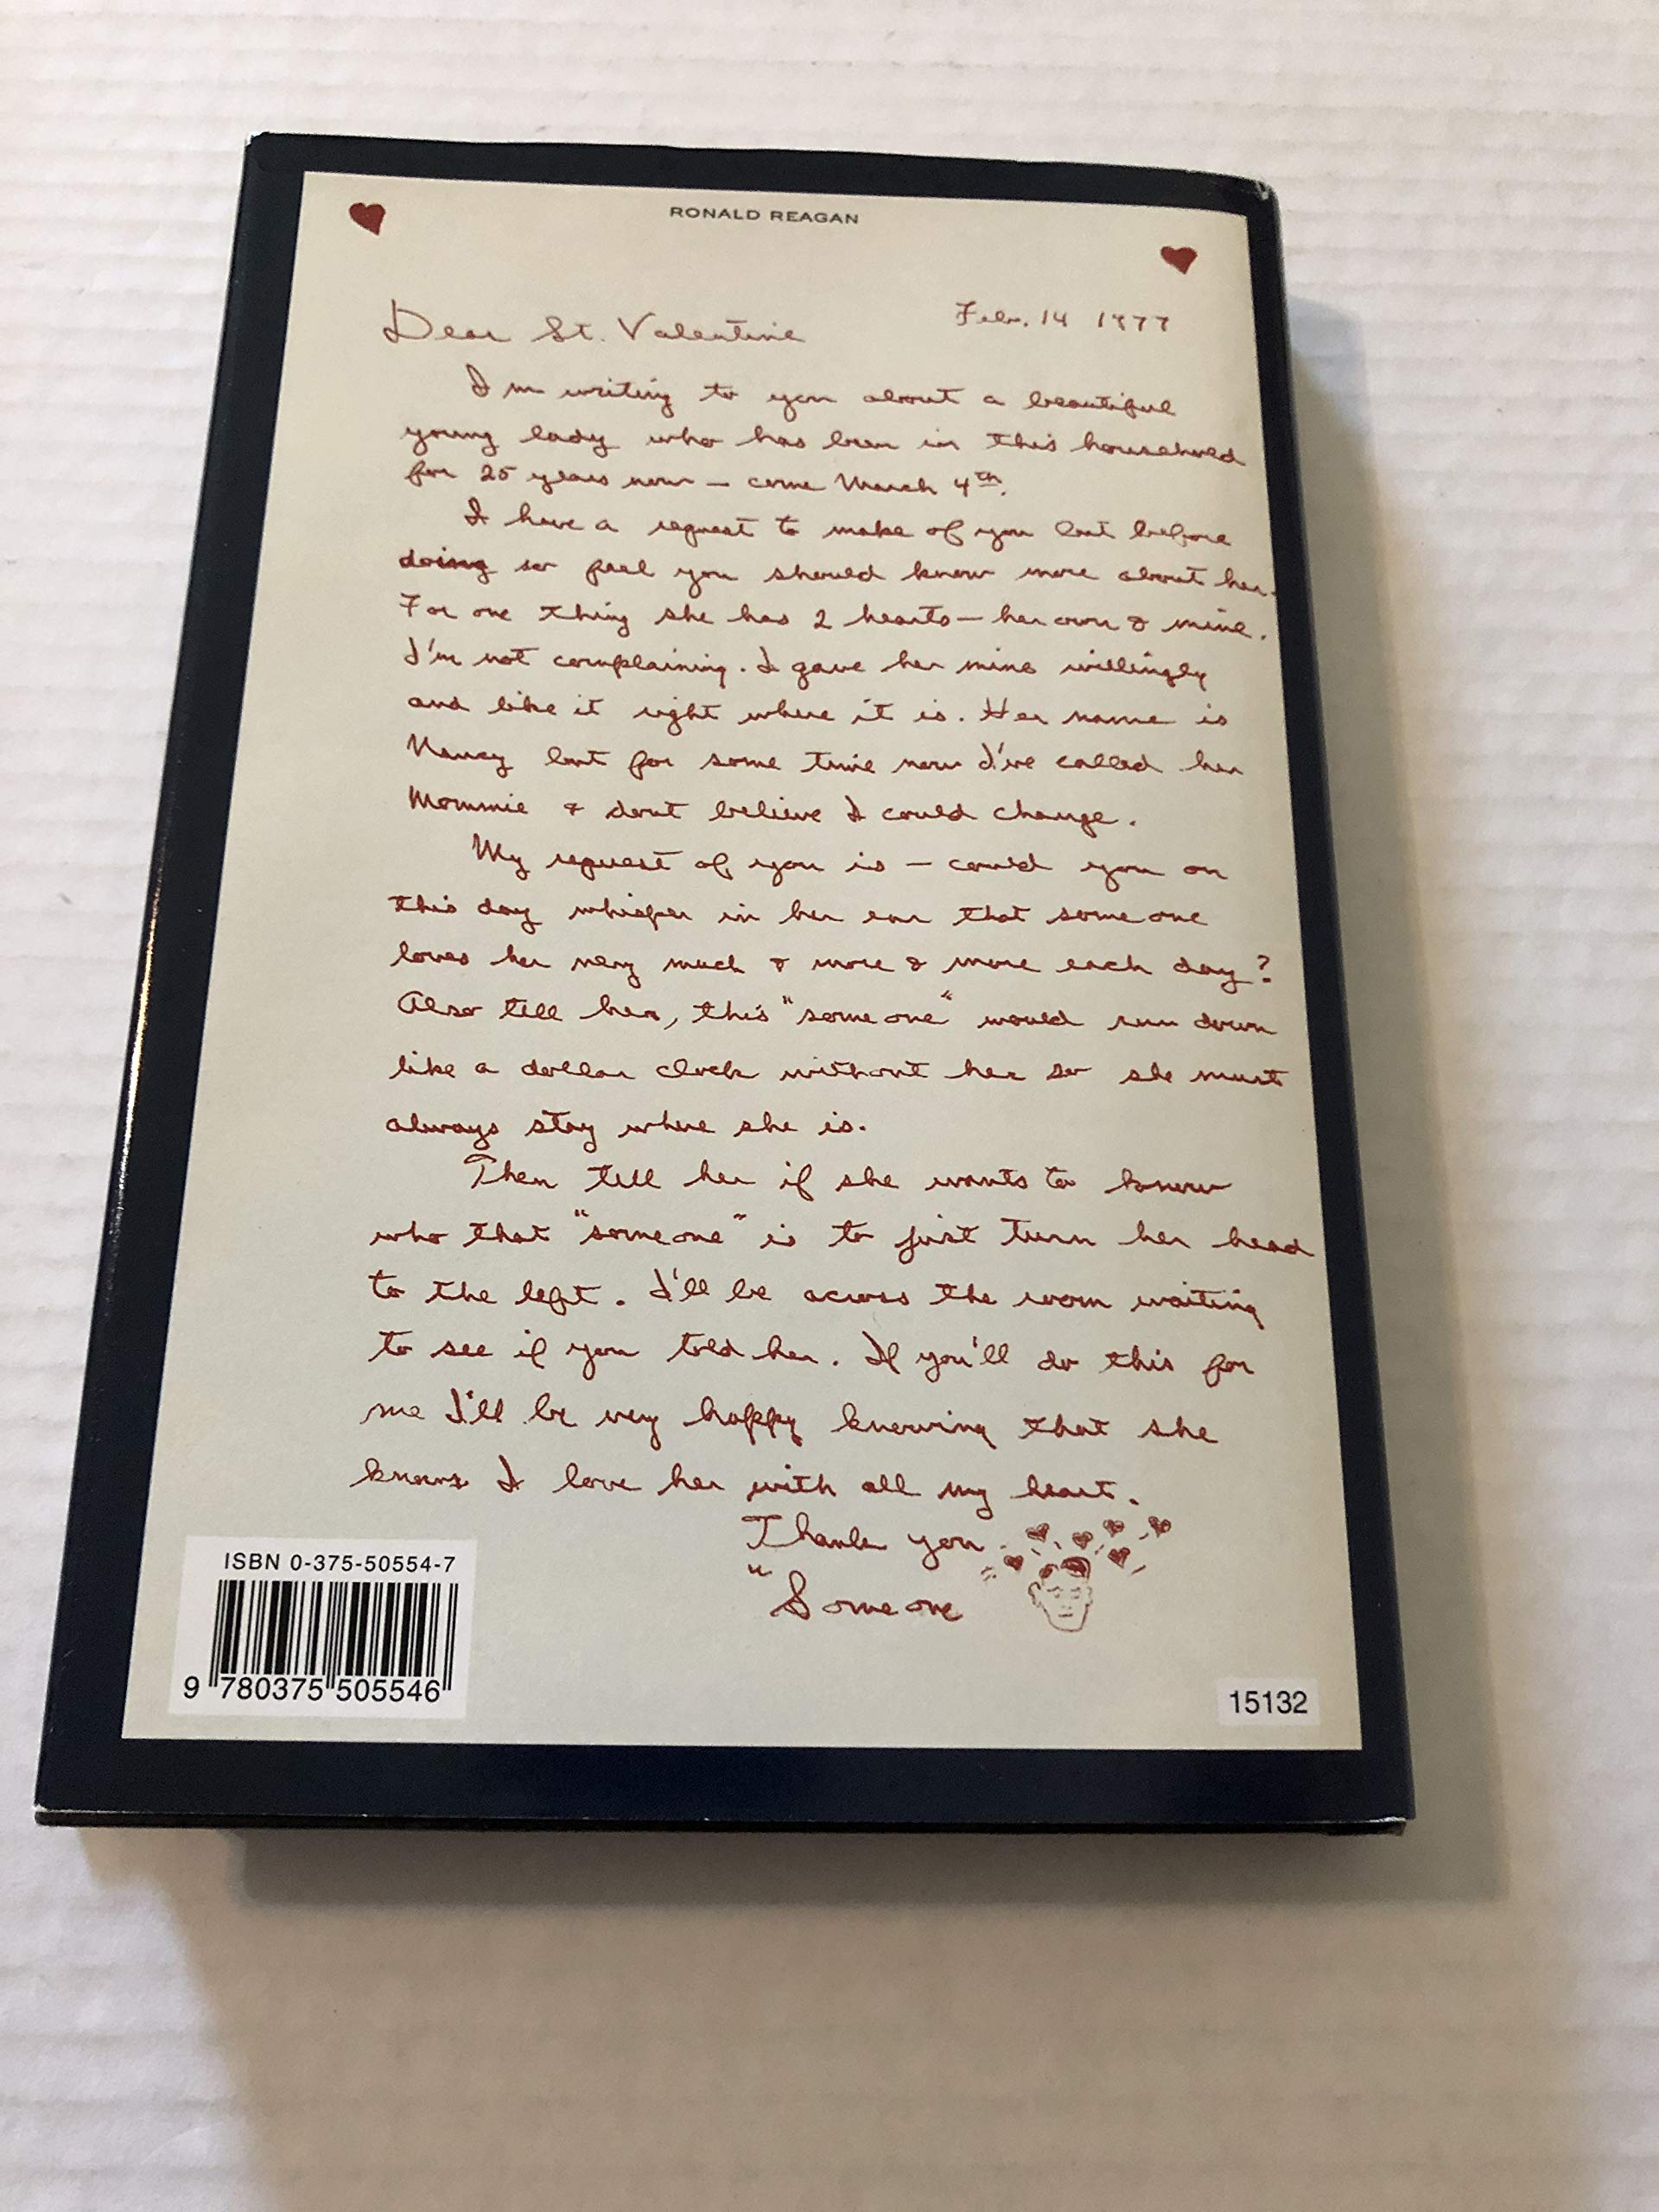 RONALD REAGAN
Feb. 14 1977
Dear St. Valentine
I'm writing to you about a beautiful
young lady who has been in this household
for 25 years now — come March 4th.
I have a request to make of you but before
doing so feel you should know more about her.
For one thing she has 2 hearts — her own & mine.
I'm not complaining. I gave her mine willingly
and like it right where it is. Her name is
Nancy but for some time now I've called her
Mommie & don't believe I could change.
My request of you is — could you on
this day whisper in her ear that someone
loves her very much & more & more each day?
Also tell her, this "someone" would run down
like a dollar clock without her so she must
always stay where she is.
Then tell her if she wants to know
who that "someone" is to just turn her head
to the left. I'll be across the room waiting
to see if you told her. If you'll do this for
me I'll be very happy knowing that she
knows I love her with all my heart.
Thank you.
"Someone"
ISBN 0-375-50554-7
9 780375 505546
15132